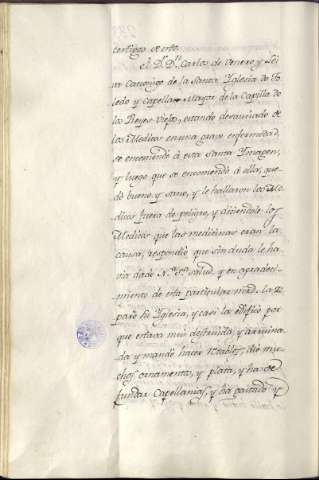 testigo de esto.
El D.r D.n Carlos de Venero y Lei
va Canonigo de la Santa Iglesia de To
ledo y Capellan Mayor de la Capilla de
los Reyes Viejos, estando desauciado de
los Medicos en una grave enfermedad,
se encomendó á esta Santa Ymagen,
y luego que se encomendó á ella, que
dó bueno y sano, y le hallaron los Me
dicos fuera de peligro, y diciendole los
Medicos que las medicinas eran la
causa, respondió que sin duda le ha
via dado N.ra S.ra salud, y en agradeci
miento de esta particular mrd. la Re
paró su Iglesia, y casi la edificó por
que estava mui destruida, y arruina
da y mandó hacer retablos, dio mu
chos ornamentos, y plata, y ha de
fundar Capellanias, y ha gastado y